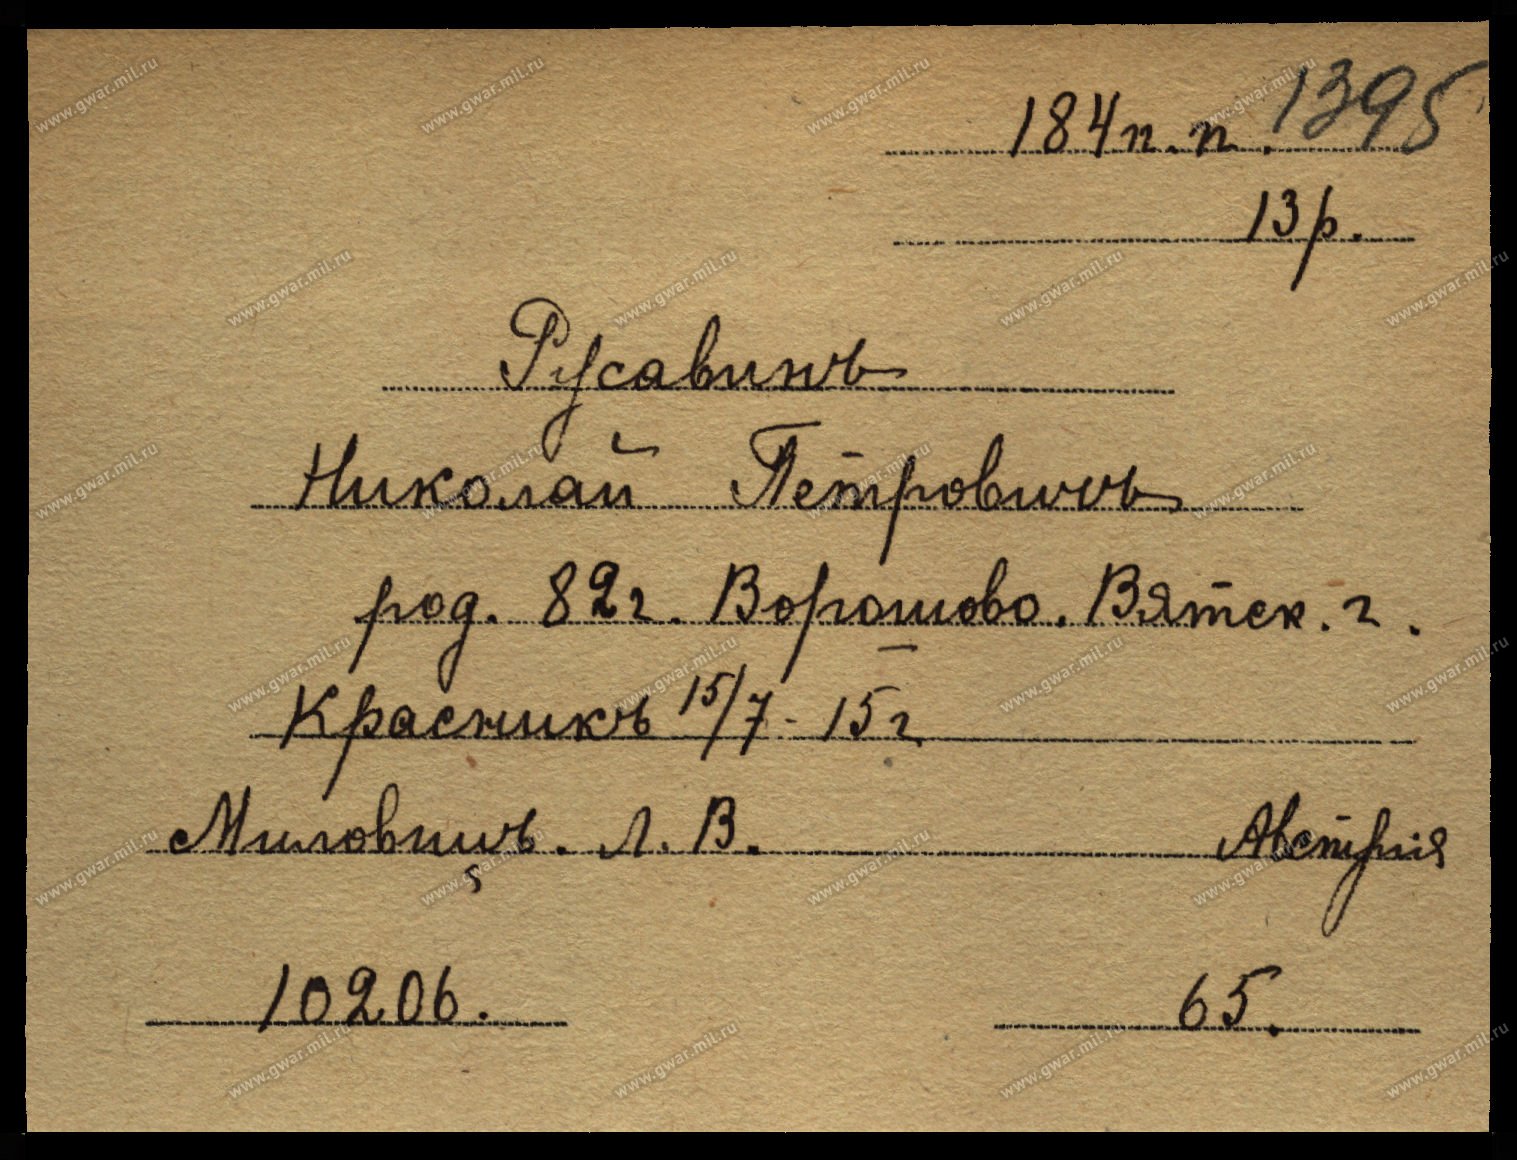 184 п. п. 1395
13 р.
Русавинъ
Николай Петровичъ
род. 82 г. Ворошово. Вятск. г.
Красникъ 15/7 - 15 г
Миловицъ. Л. В. Австрія
10206. 65.
www.gwar.mil.ru